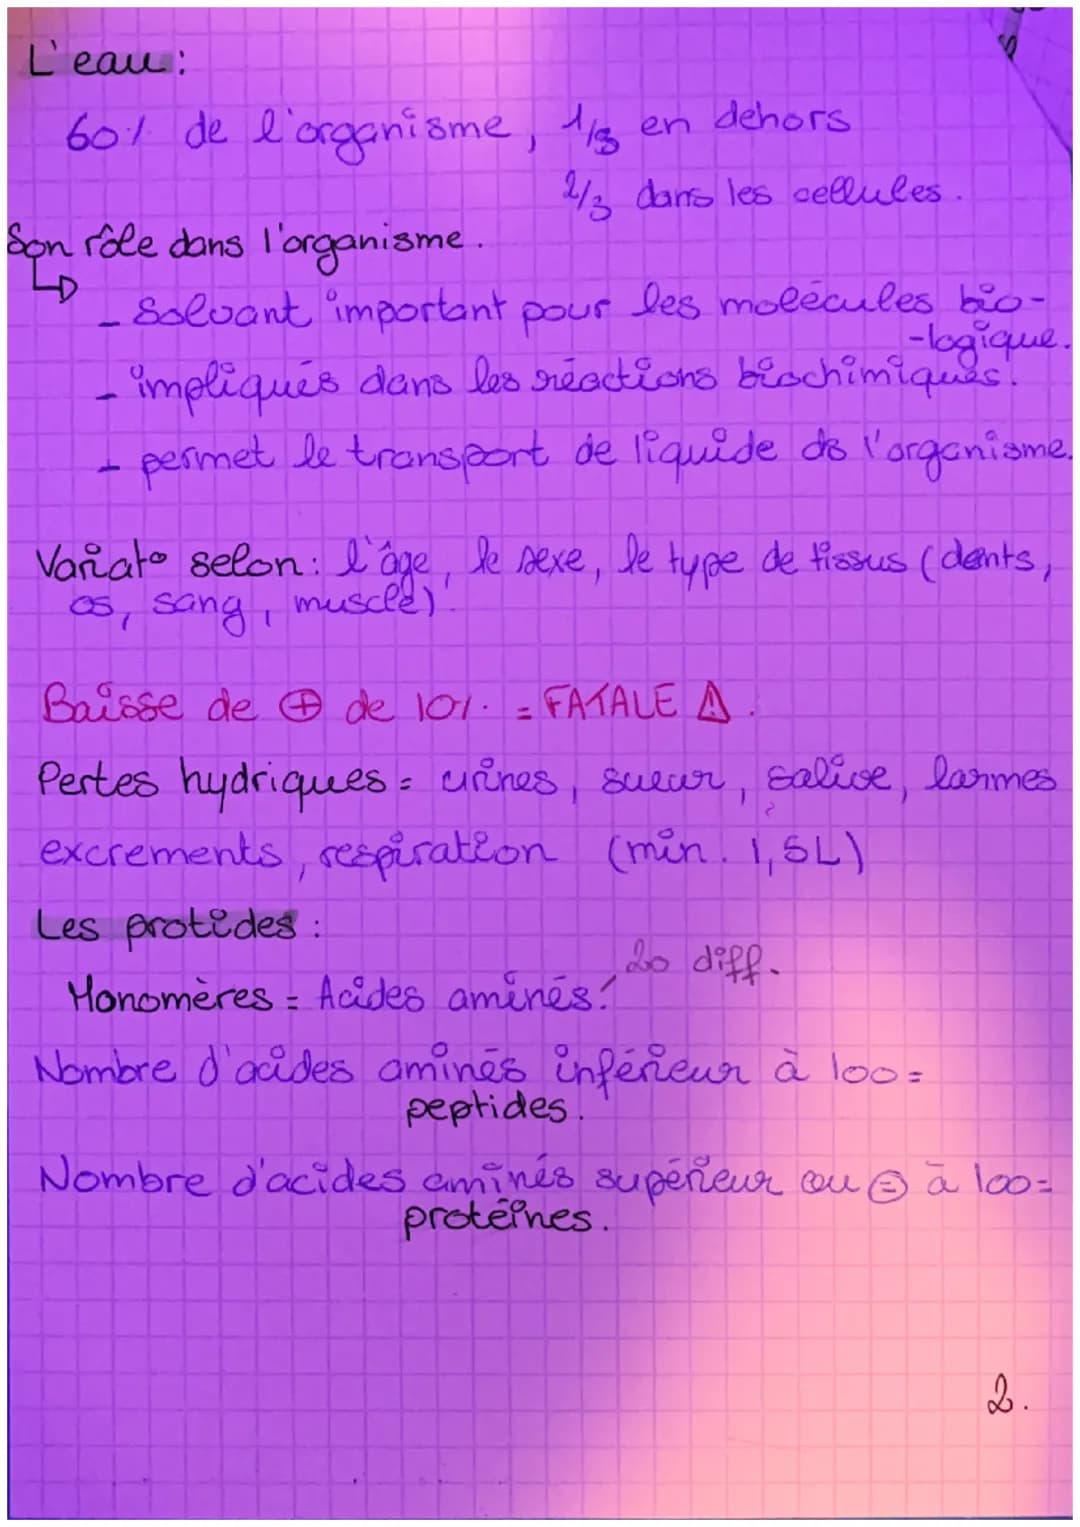 L'eau :
60% de l'organisme, 1/3 en dehors
2/3 dans les cellules.
Son rôle dans l'organisme.
- Solvant important pour les molécules bio-
-logique.
- impliqués dans les réactions biochimiques.
- permet le transport de liquide ds l'organisme.
Variat° selon : l'âge, le sexe, le type de tissus (dents,
os, sang, muscle).
Baisse de ⊕ de 10% = FATALE ⚠.
Pertes hydriques = urines, sueur, salive, larmes
excrements, respiration (min. 1,5L)
Les protides :
20 diff.
Monomères = Acides aminés.
Nombre d'acides aminés inférieur à 100 =
peptides.
Nombre d'acides aminés supérieur ou ⊜ à 100 =
protéines.
2.